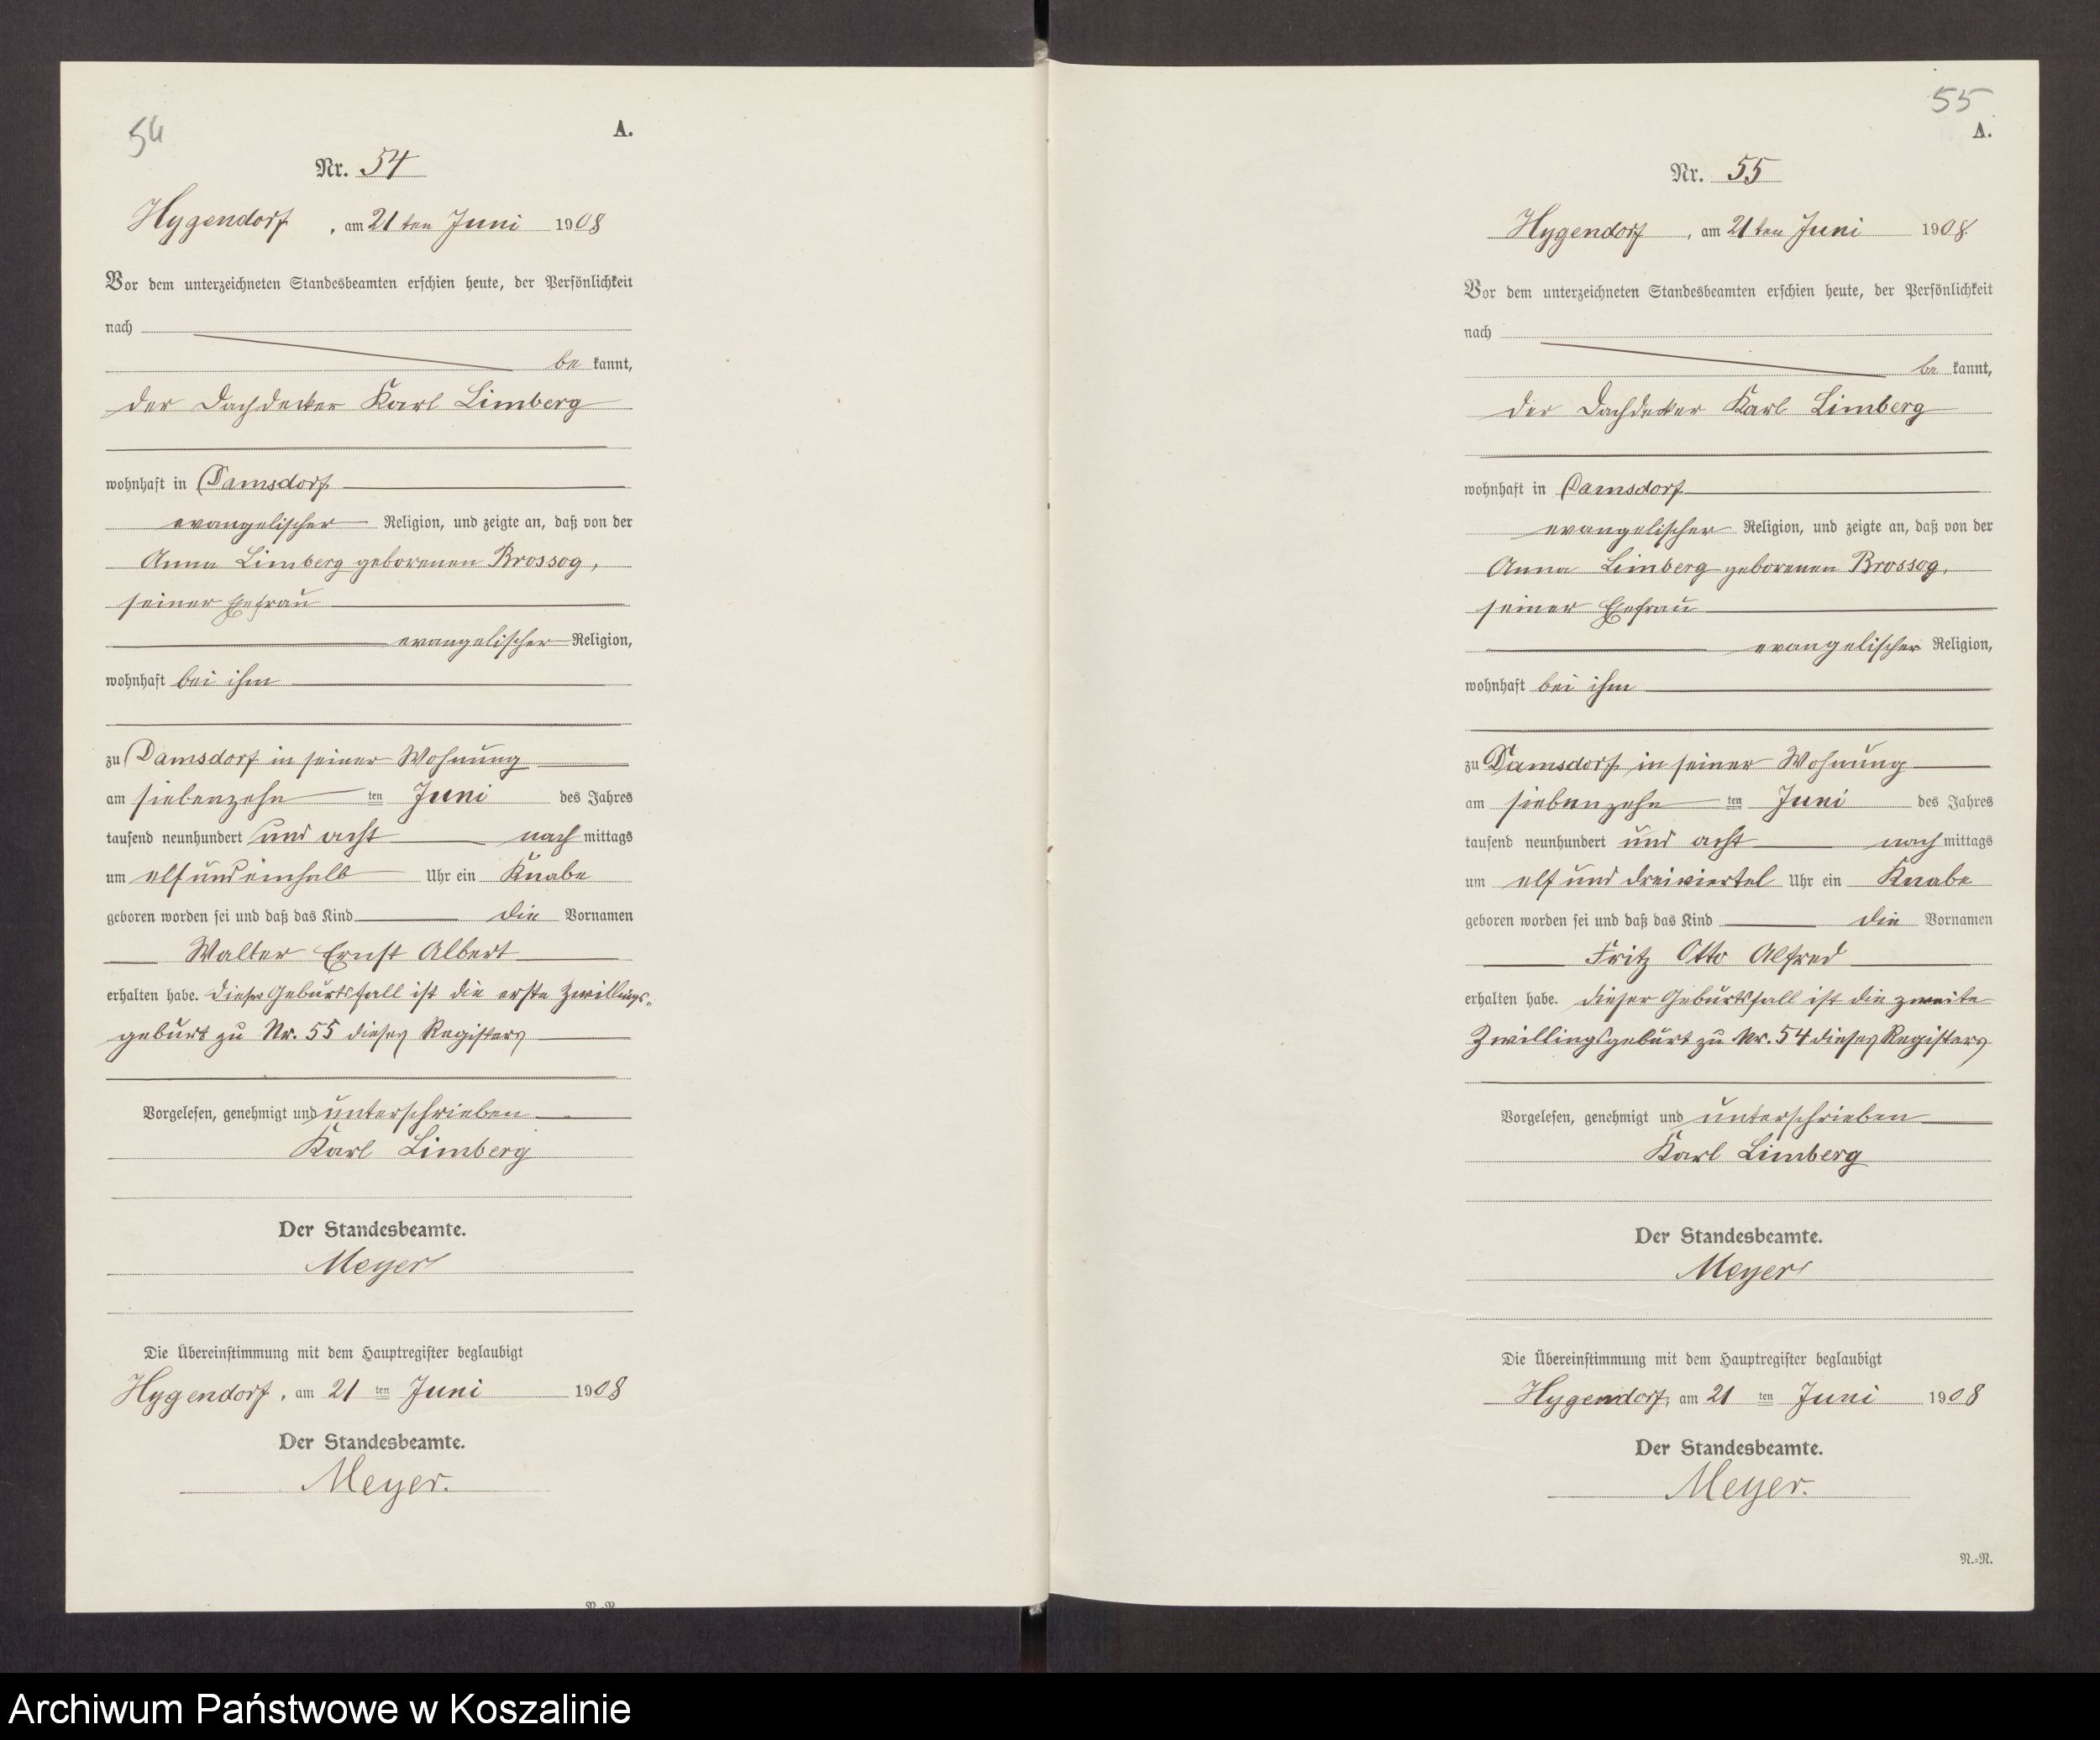 54
A.
Nr. 54
Hygendorf, am 21ten Juni 1908
Vor dem unterzeichneten Standesbeamten erschien heute, der Persönlichkeit
nach
be kannt,
der Dachdecker Karl Limberg
wohnhaft in Damsdorf
evangelischer Religion, und zeigte an, daß von der
Anna Limberg geborenen Brossog,
seiner Ehefrau
evangelischer Religion,
wohnhaft bei ihm
zu Damsdorf in seiner Wohnung
am siebenzehn ten Juni des Jahres
tausend neunhundert und acht nach mittags
um elf und einhalb Uhr ein Knabe
geboren worden sei und daß das Kind die Vornamen
Walter Ernst Albert
erhalten habe. Dieser Geburtsfall ist die erste Zwillings-
geburt zu Nr. 55 dieses Registers
Vorgelesen, genehmigt und unterschrieben
Karl Limberg
Der Standesbeamte.
Meyer
Die Übereinstimmung mit dem Hauptregister beglaubigt
Hygendorf, am 21 ten Juni 1908
Der Standesbeamte.
Meyer.
55
A.
Nr. 55
Hygendorf, am 21ten Juni 1908
Vor dem unterzeichneten Standesbeamten erschien heute, der Persönlichkeit
nach
be kannt,
der Dachdecker Karl Limberg
wohnhaft in Damsdorf
evangelischer Religion, und zeigte an, daß von der
Anna Limberg geborenen Brossog,
seiner Ehefrau
evangelischer Religion,
wohnhaft bei ihm
zu Damsdorf in seiner Wohnung
am siebenzehn ten Juni des Jahres
tausend neunhundert und acht nach mittags
um elf und dreiviertel Uhr ein Knabe
geboren worden sei und daß das Kind die Vornamen
Fritz Otto Alfred
erhalten habe. Dieser Geburtsfall ist die zweite
Zwillingsgeburt zu Nr. 54 dieses Registers
Vorgelesen, genehmigt und unterschrieben
Karl Limberg
Der Standesbeamte.
Meyer
Die Übereinstimmung mit dem Hauptregister beglaubigt
Hygendorf, am 21 ten Juni 1908
Der Standesbeamte.
Meyer.
N.-N.
Archiwum Państwowe w Koszalinie